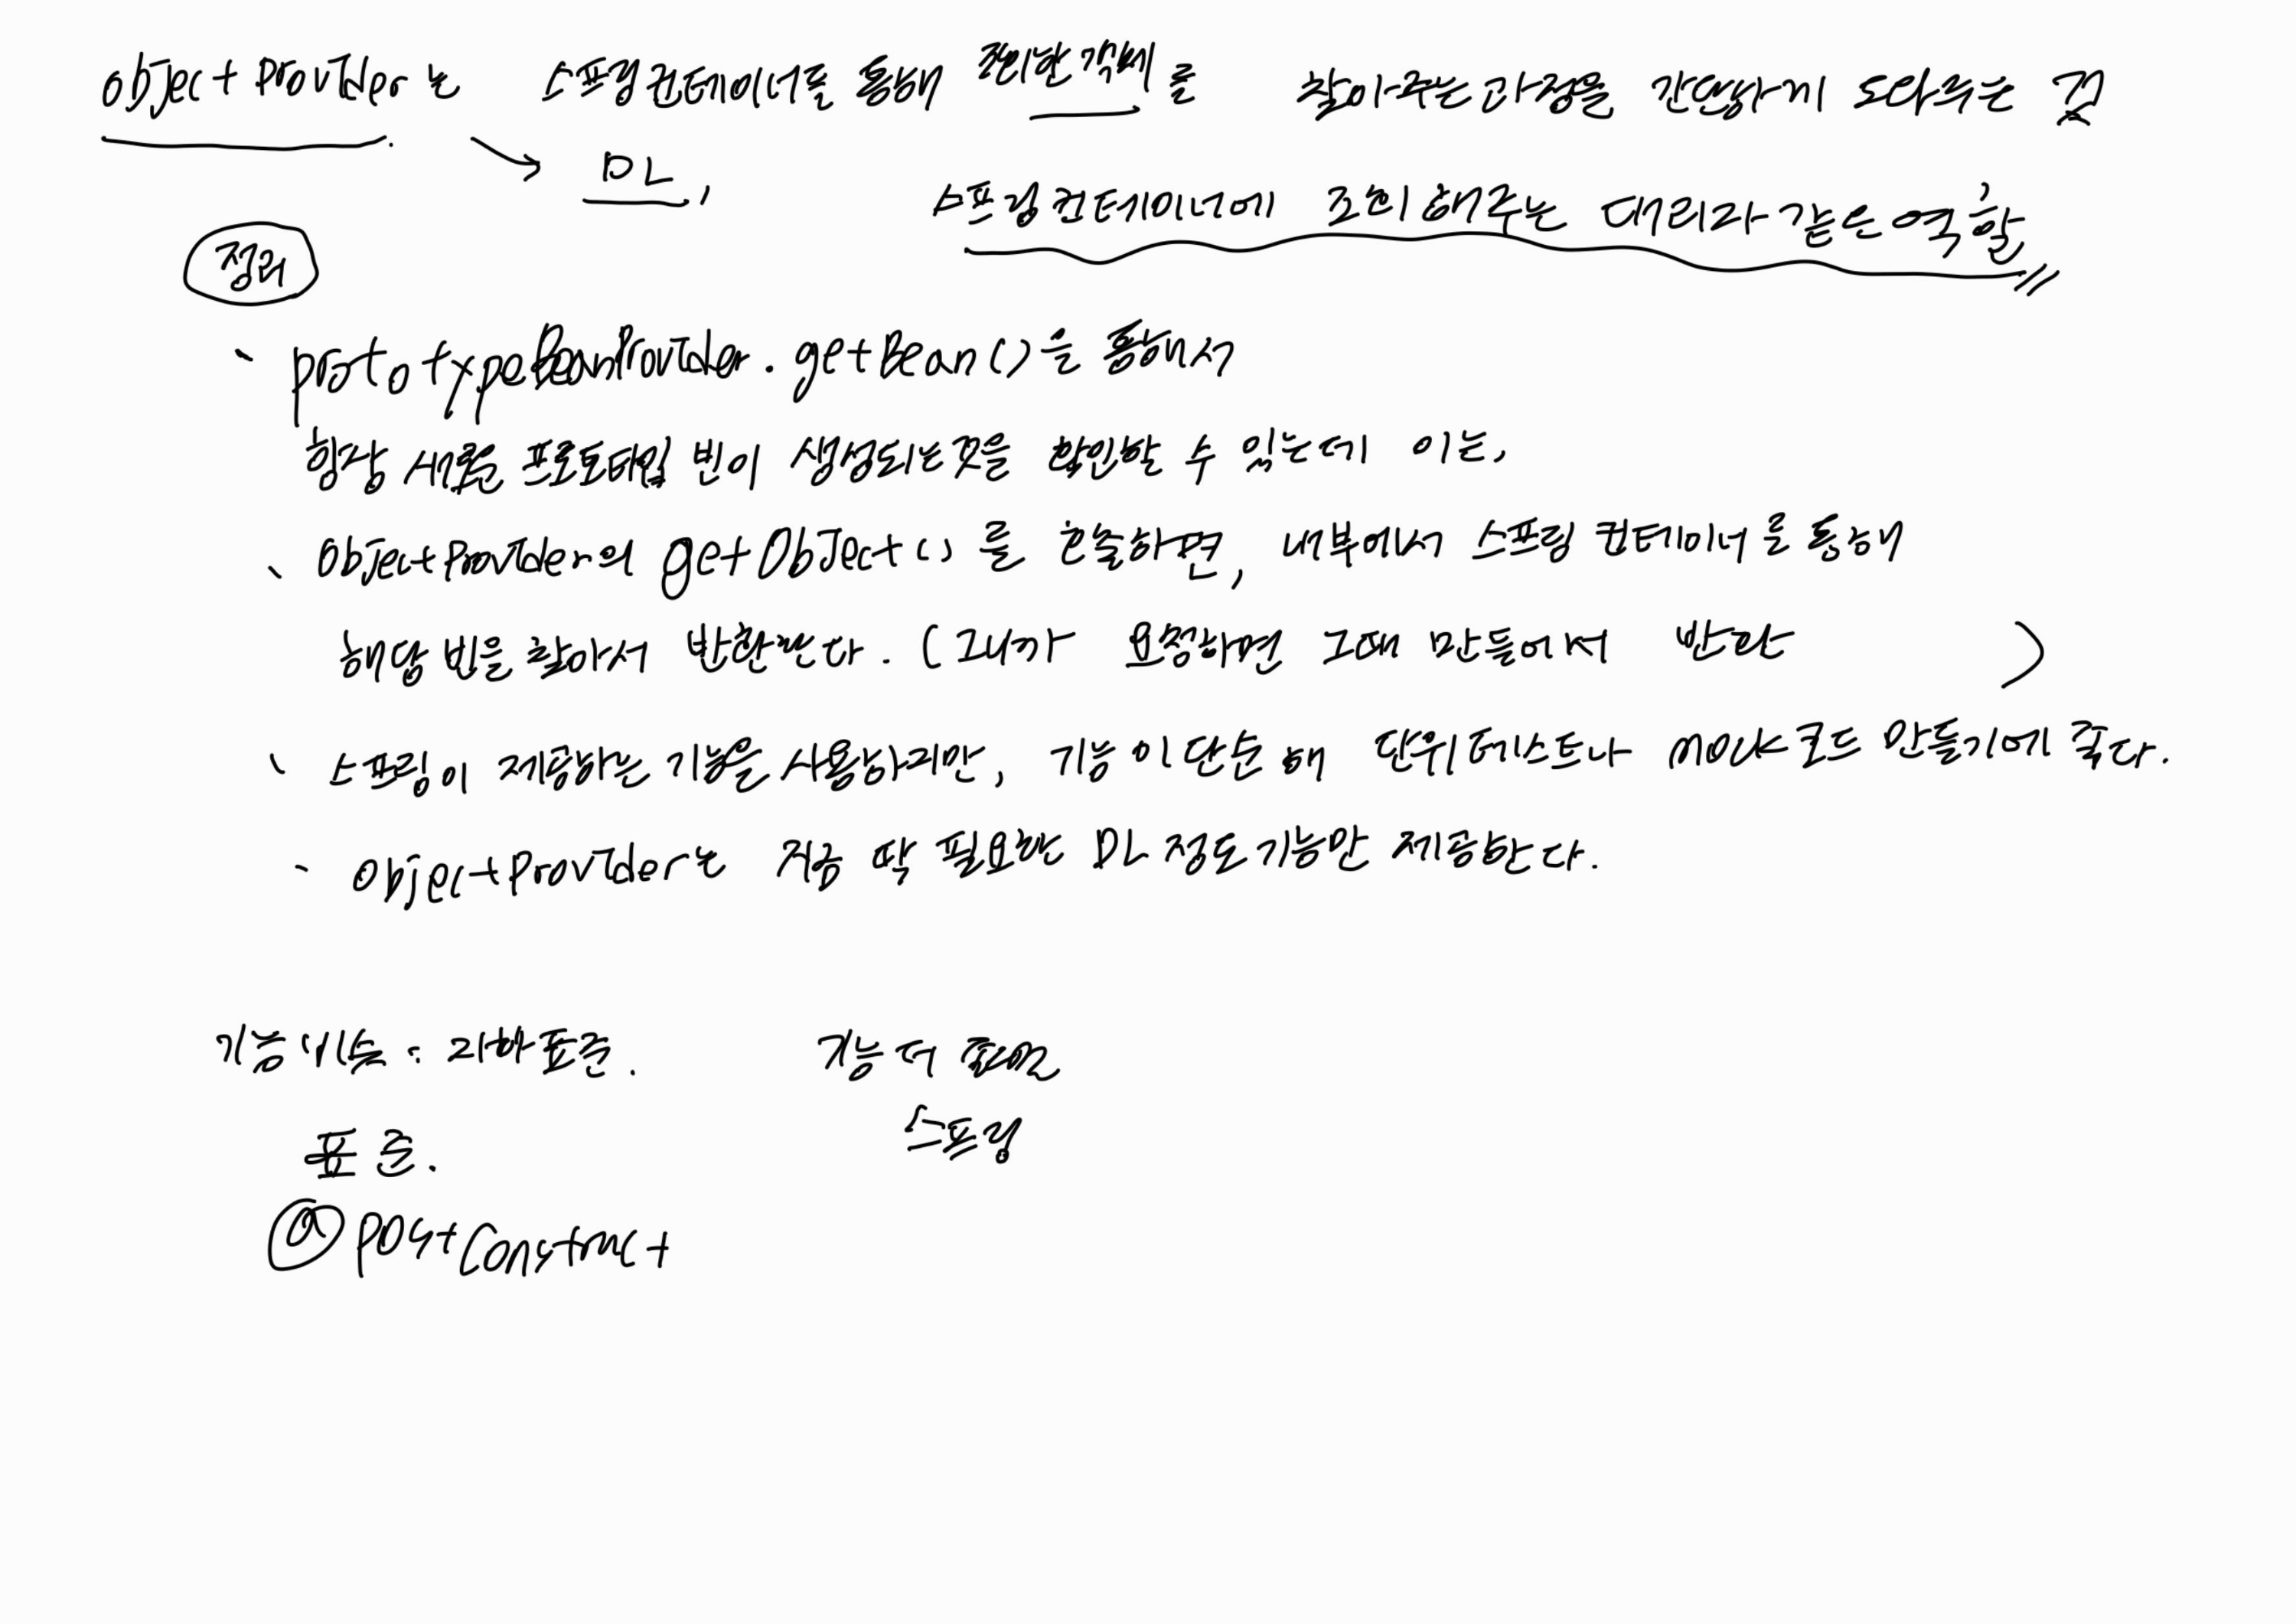 ObjectProvider는 스프링 컨테이너를 통해 객체를 찾아주는 과정을 간단하게 도와주는 것
→ DL,
스프링 컨테이너에 조회해주는 대리자 같은 역할
정리
prototypeBeanProvider.getBean()을 통해서
항상 새로운 프로토타입 빈이 생성되는 것을 확인할 수 있는데 이는,
ObjectProvider의 getObject()를 호출하면, 내부에서 스프링 컨테이너를 통해
해당 빈을 찾아서 반환한다. (그니까 요청하면 그때 만들어서 반환)
스프링이 제공하는 기능을 사용하지만, 기능이 단순해 단위테스트나 mock 코드 만들기에 좋다.
ObjectProvider는 지금 딱 필요한 DL 정도 기능만 제공한다.
기능 비슷 : 자바 표준. 기능 더
표준. 스프링
@PostConstruct